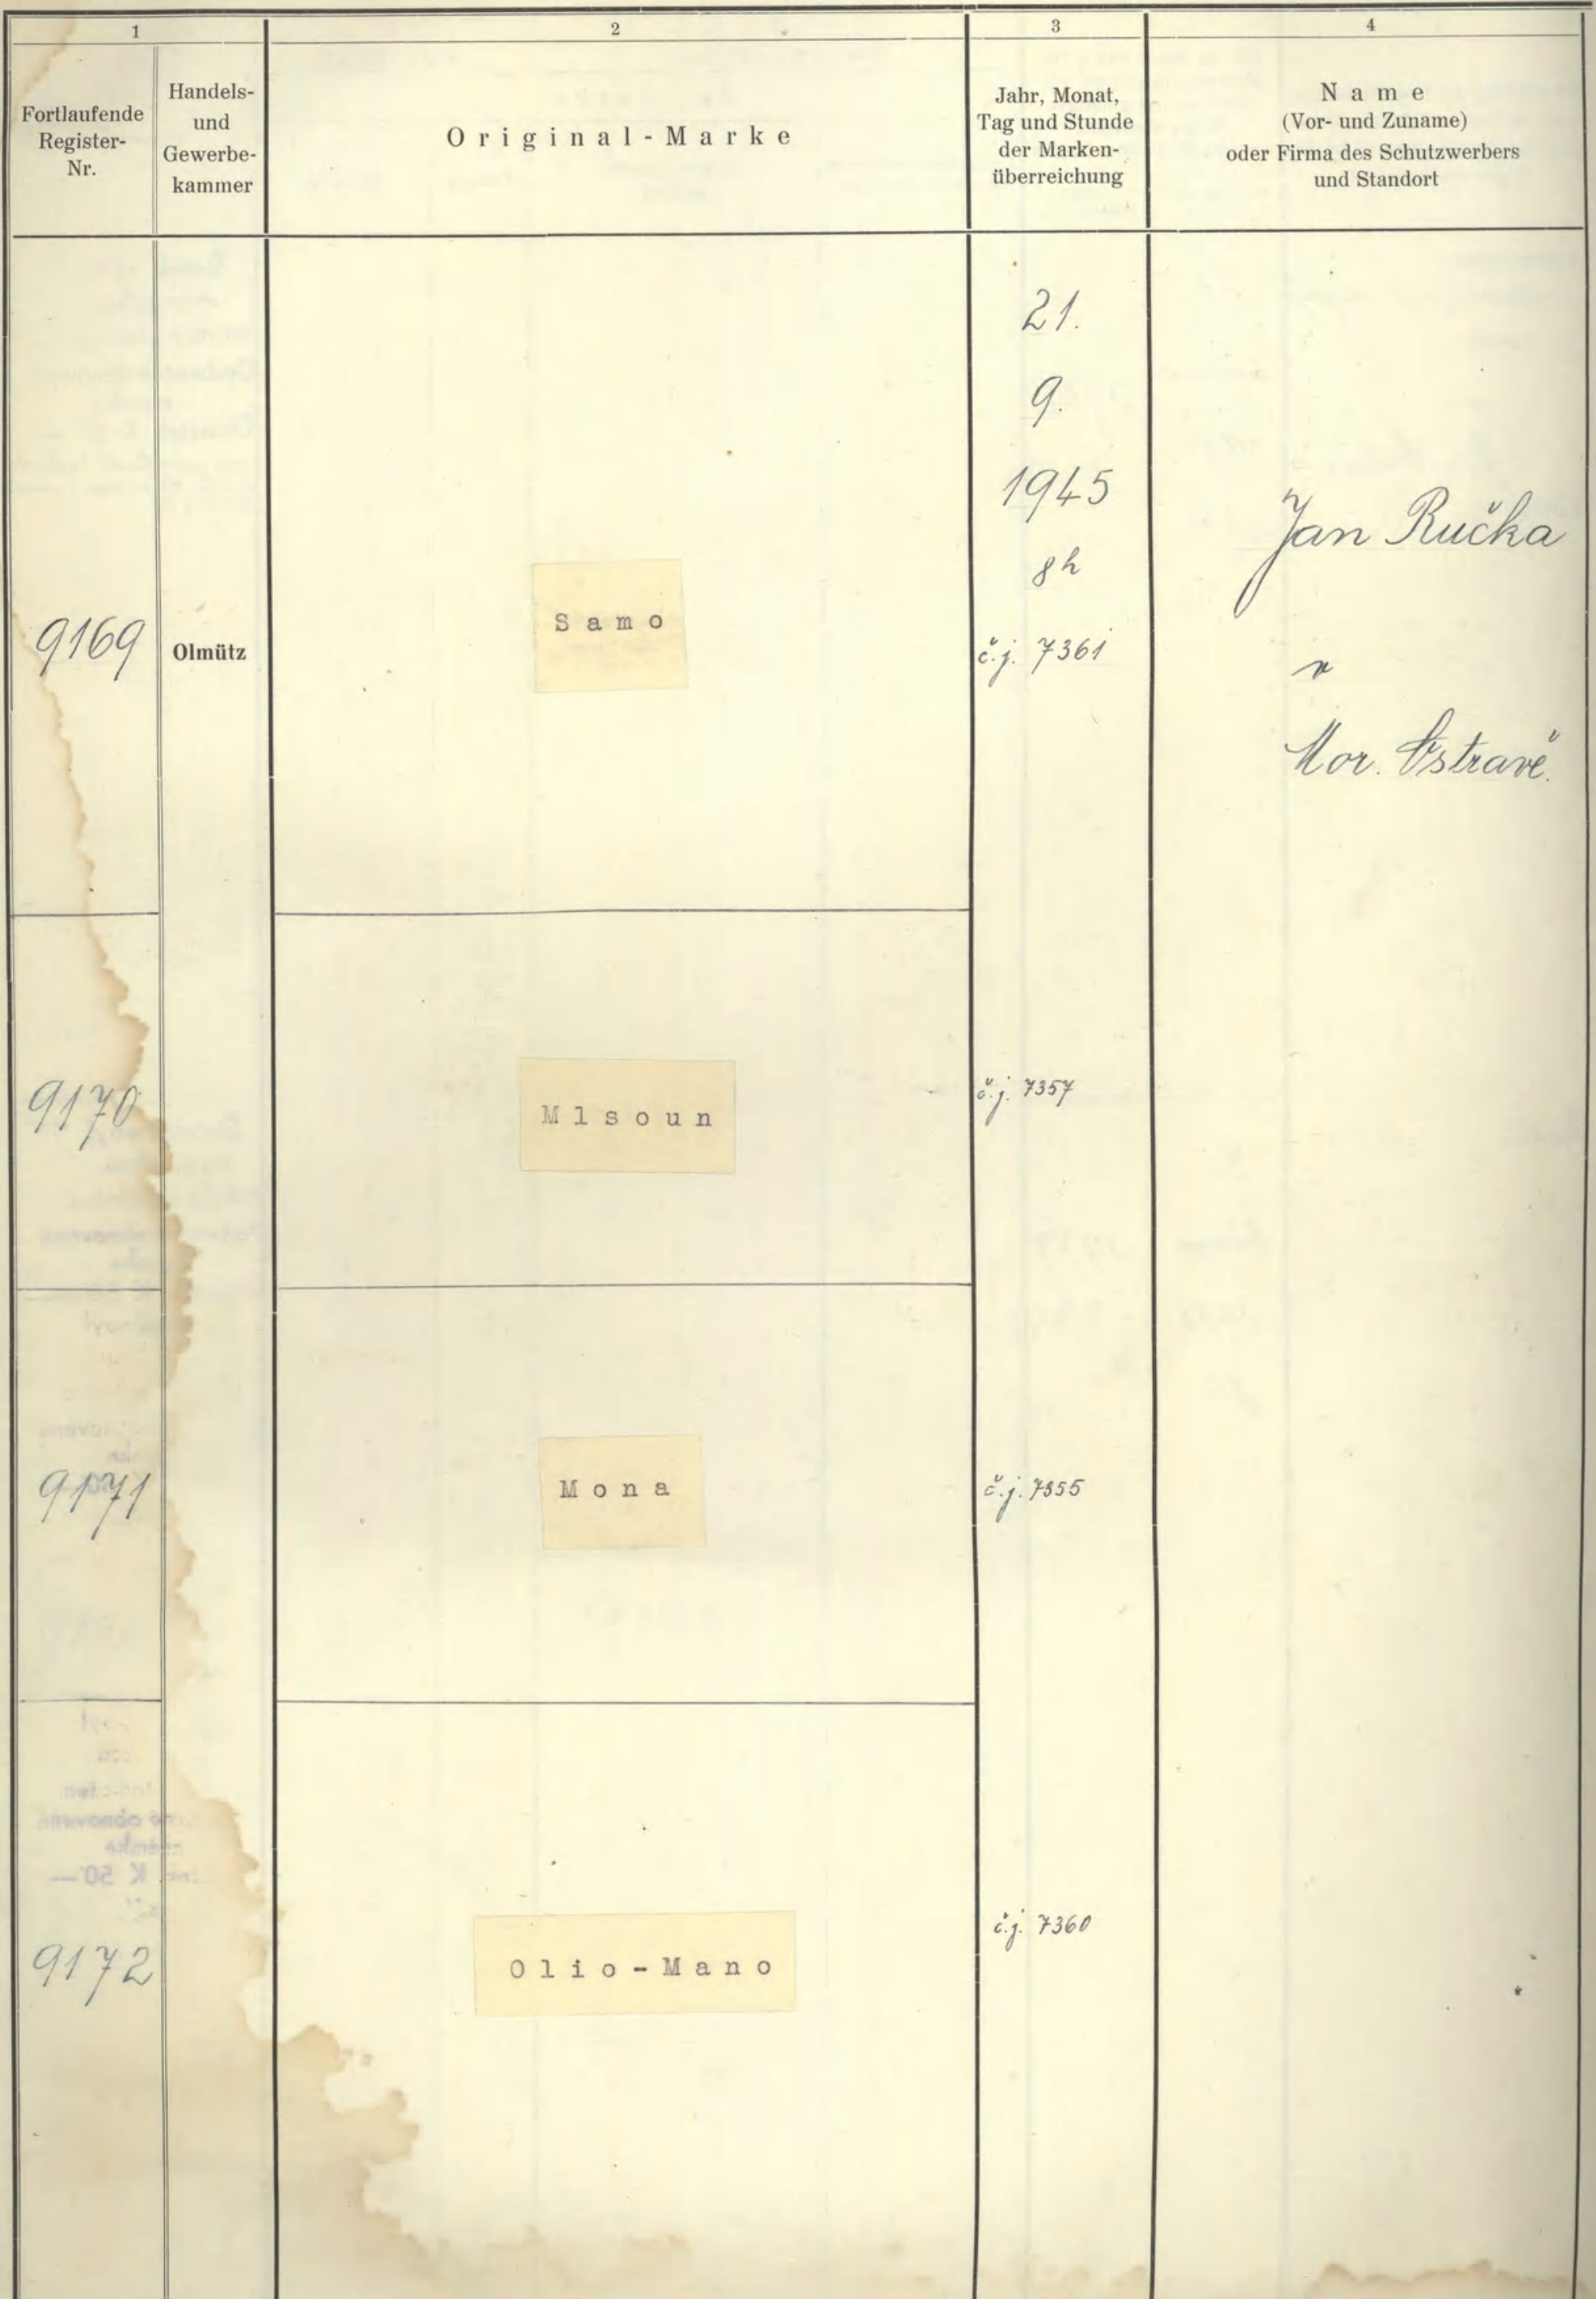 1
2
3
4
Fortlaufende
Register-
Nr.
Handels-
und
Gewerbe-
kammer
Original-Marke
Jahr, Monat,
Tag und Stunde
der Marken-
überreichung
Name
(Vor- und Zuname)
oder Firma des Schutzwerbers
und Standort
9169
Olmütz
Samo
21.
9.
1945
8h
č.j. 7361
Jan Ručka
v
Mor. Ostravě.
9170
Mlsoun
č.j. 7357
9171
Mona
č.j. 7355
9172
Olio-Mano
č.j. 7360